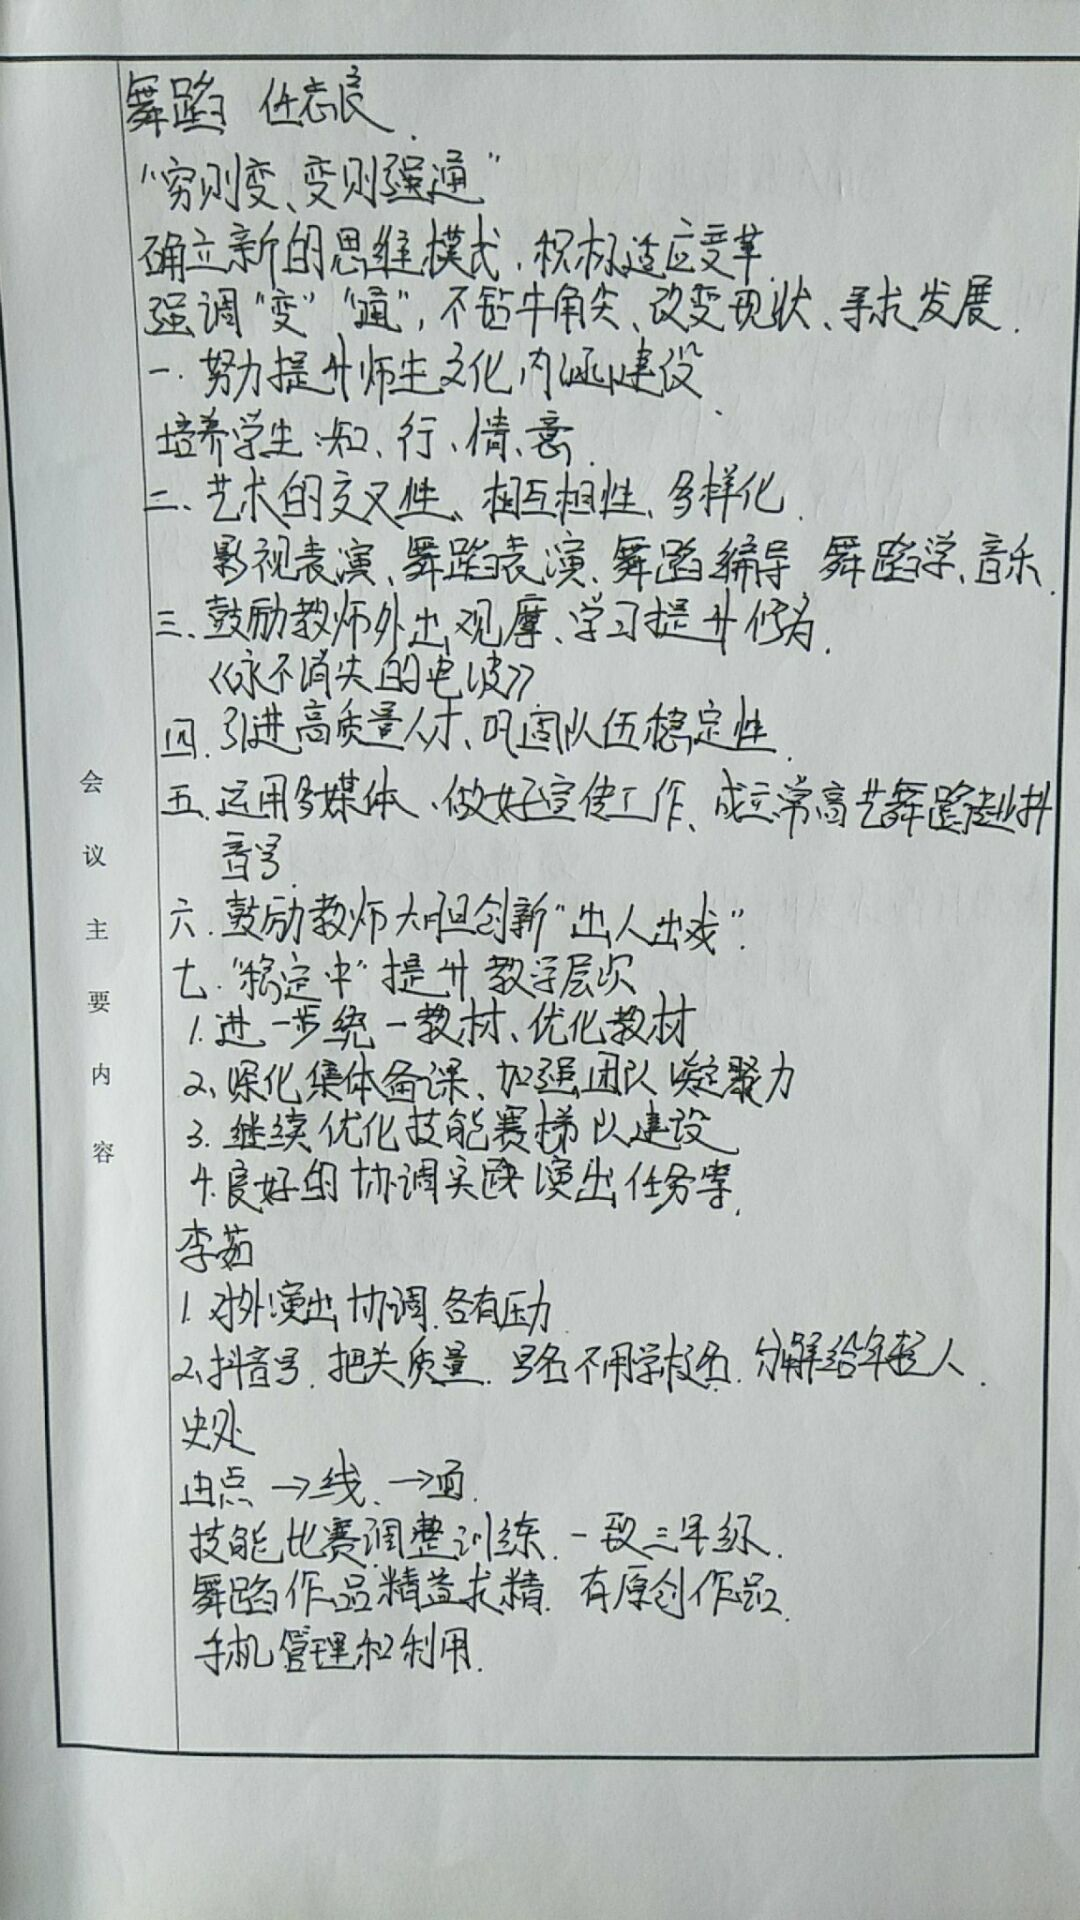 会议主要内容
舞蹈 任志良.
"穷则变、变则强通"
确立新的思维模式,积极适应变革
强调"变""通",不钻牛角尖、改变现状、寻求发展.
一.努力提升师生文化内涵建设.
培养学生:知、行、情、意.
二、艺术的交叉性、相互相性、多样化.
影视表演、舞蹈表演、舞蹈编导 舞蹈学、音乐.
三、鼓励教师外出观摩、学习提升修为.
《永不消失的电波》
四.引进高质量人才、巩固队伍稳定性.
五.运用多媒体、做好宣传工作、成立常高艺舞蹈抖
音号.
六.鼓励教师大胆创新"出人出戏".
七."稳定中"提升教学层次
1.进一步统一教材、优化教材
2.深化集体备课、加强团队凝聚力
3.继续优化技能赛梯队建设
4.良好的协调实践演出任务等.
李茹
1.对外演出协调.各有压力
2.抖音号.把关质量.号名不用学校名.分解给年轻人.
史处
由点→线.→面.
技能比赛调整训练.一致三年级.
舞蹈作品精益求精.有原创作品.
手机管理和利用.